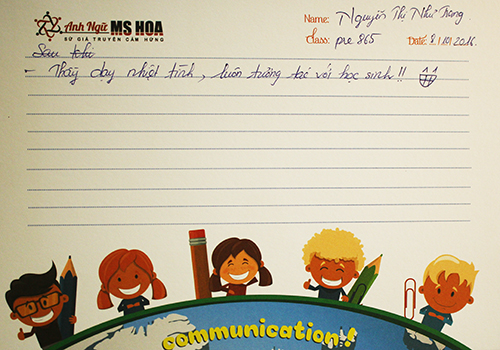 Anh Ngữ MS HOA
SỨ GIẢ TRUYỀN CẢM HỨNG
Name: Nguyễn Thị Như Trang
Class: pre 865 Date: 8/10/2016
Sáu thi
- Thầy dạy nhiệt tình, luôn tương tác với học sinh!!
communication!